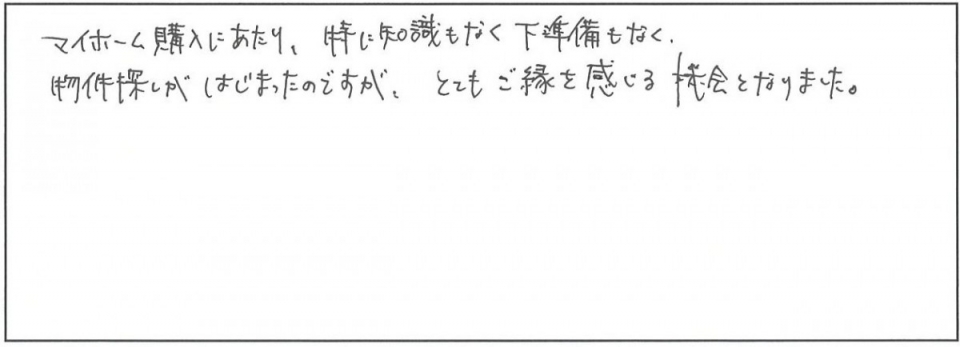 マイホーム購入にあたり、特に知識もなく下準備もなく、
物件探しがはじまったのですが、とてもご縁を感じる機会となりました。